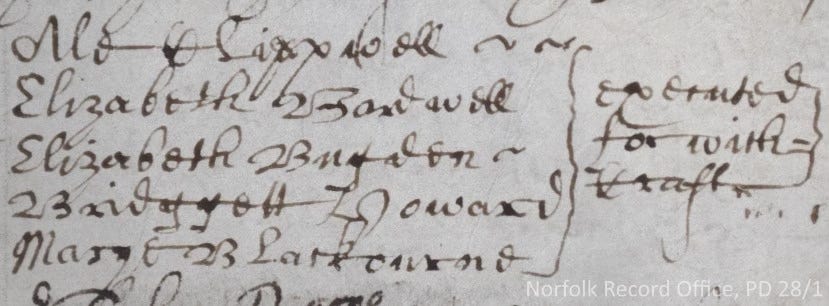 Old Clippwell
Elizabeth Bardwell
Elizabeth Bugden
Bridggett Howard
Marye Blackburne
executed
for witch=
kraft
Norfolk Record Office, PD 28/1